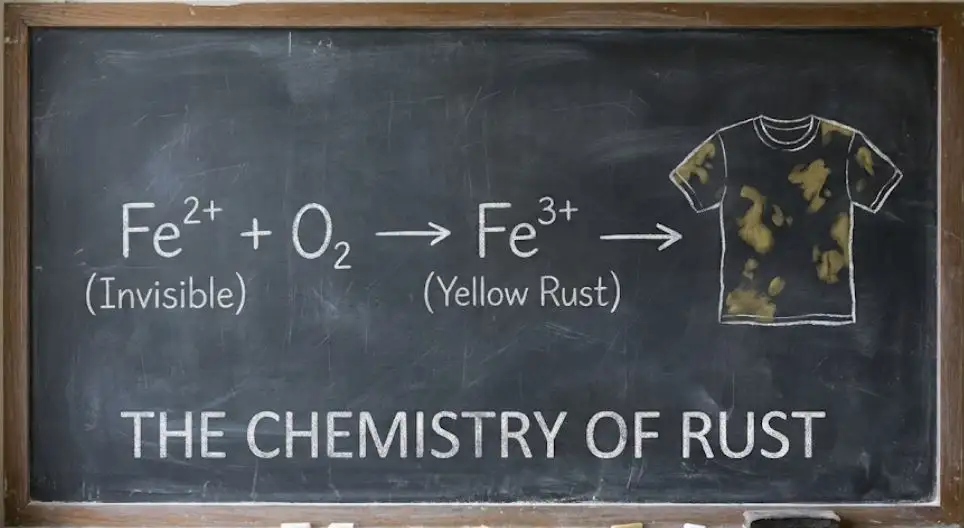 Fe²⁺ + O₂ → Fe³⁺ →
(Invisible) (Yellow Rust)
THE CHEMISTRY OF RUST